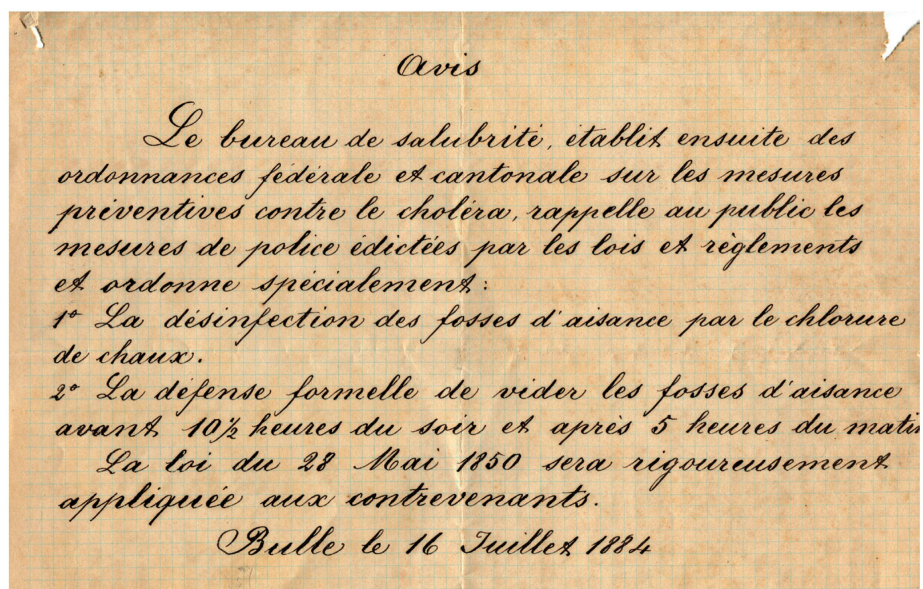 Avis
Le bureau de salubrité, établit ensuite des
ordonnances fédérale et cantonale sur les mesures
préventives contre le choléra, rappelle au public les
mesures de police édictées par les lois et règlements
et ordonne spécialement :
1º La désinfection des fosses d'aisance par le chlorure
de chaux.
2º La défense formelle de vider les fosses d'aisance
avant 10½ heures du soir et après 5 heures du matin
La loi du 28 Mai 1850 sera rigoureusement
appliquée aux contrevenants.
Bulle le 16 Juillet 1884